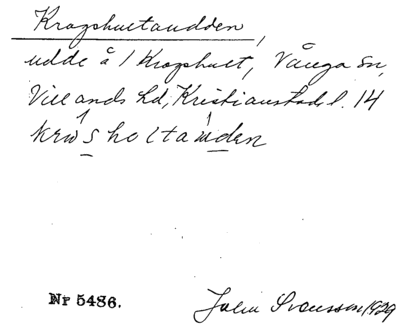 Kragshultaudden,
udde å / Kragshult, Vånga sn,
Villands hd, Kristianstads l. 14
Nr 5486.
Julia Svensson 1929